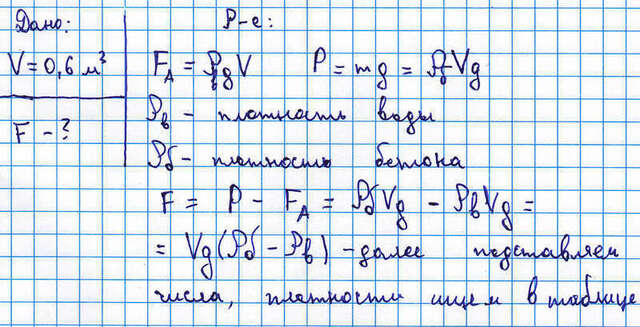 Дано: Р-е:
V = 0,6 м³ F_A = ρ_в g V P = mg = ρ_б V g
F - ? ρ_в - плотность воды
ρ_б - плотность бетона
F = P - F_A = ρ_б V g - ρ_в V g =
= V g (ρ_б - ρ_в) - далее подставляем
числа, плотности ищем в таблице